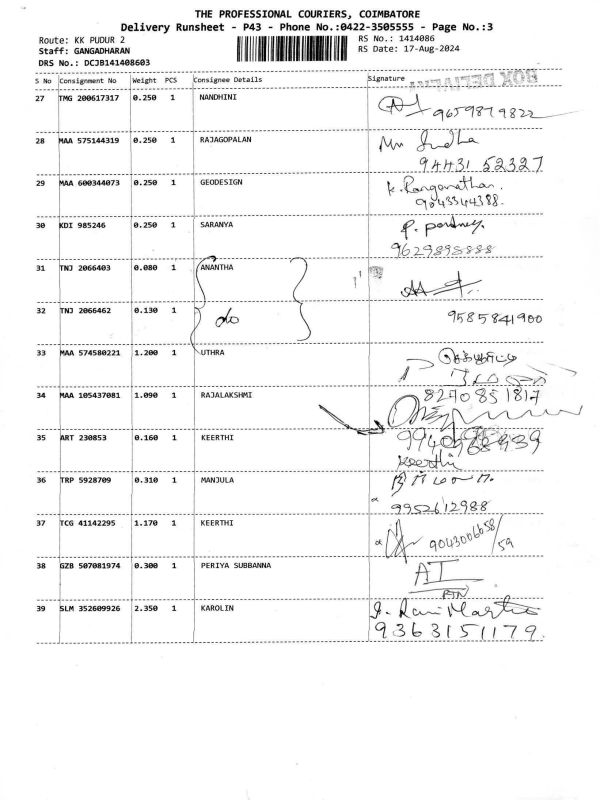 THE PROFESSIONAL COURIERS, COIMBATORE
Delivery Runsheet - P43 - Phone No.:0422-3505555 - Page No.:3
Route: KK PUDUR 2 RS No.: 1414086
Staff: GANGADHARAN RS Date: 17-Aug-2024
DRS No.: DCJB141408603
S No Consignment No Weight PCS Consignee Details Signature
BOX DELIVERY
27 TMG 200617317 0.250 1 NANDHINI
9659879822
28 MAA 575144319 0.250 1 RAJAGOPALAN
Mrs Sudha
94431 52327
29 MAA 600344073 0.250 1 GEODESIGN
K. Ranganathan.
9043344388.
30 KDI 985246 0.250 1 SARANYA
9629898888
31 TNJ 2066403 0.080 1 ANANTHA
32 TNJ 2066462 0.130 1 do 9585841900
33 MAA 574580221 1.200 1 UTHRA
34 MAA 105437081 1.090 1 RAJALAKSHMI 8270851817
35 ART 230853 0.160 1 KEERTHI
Keerthi
36 TRP 5928709 0.310 1 MANJULA
9952612988
37 TCG 41142295 1.170 1 KEERTHI 9043006658/59
38 GZB 507081974 0.300 1 PERIYA SUBBANNA
39 SLM 352609926 2.350 1 KAROLIN
9363151179.